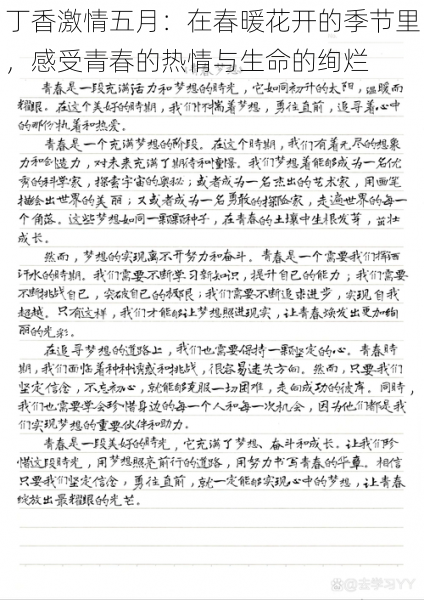 丁香激情五月：在春暖花开的季节里
，感受青春的热情与生命的绚烂
青春是一段充满活力和梦想的时光，它如同初升的太阳，温暖而
耀眼。在这个美好的时期，我们怀揣着梦想，勇往直前，追寻着心中
的那份执着和热爱。
青春是一个充满梦想的阶段。在这个时期，我们有着无尽的想象
力和创造力，对未来充满了期待和憧憬。我们梦想着能够成为一名优
秀的科学家，探索宇宙的奥秘；或者成为一名杰出的艺术家，用画笔
描绘出世界的美丽；又或者成为一名勇敢的探险家，走遍世界的每一
个角落。这些梦想如同一颗颗种子，在青春的土壤中生根发芽，茁壮
成长。
然而，梦想的实现离不开努力和奋斗。青春是一个需要我们挥洒
汗水的时期。我们需要不断学习新知识，提升自己的能力；我们需要
不断挑战自己，突破自己的极限；我们需要不断追求进步，实现自我
超越。只有这样，我们才能够让梦想照进现实，让青春焕发出更加绚
丽的光彩。
在追寻梦想的道路上，我们也需要保持一颗坚定的心。青春时
期，我们面临着种种诱惑和挑战，很容易迷失方向。然而，只要我们
坚定信念，不忘初心，就能够克服一切困难，走向成功的彼岸。同时，
我们也需要学会珍惜身边的每一个人和每一次机会，因为他们都是我
们实现梦想的重要伙伴和助力。
青春是一段美好的时光，它充满了梦想、奋斗和成长。让我们珍
惜这段时光，用梦想照亮前行的道路，用努力书写青春的华章。相信
只要我们坚定信念，勇往直前，就一定能够实现心中的梦想，让青春
绽放出最耀眼的光芒。
@去学习YY